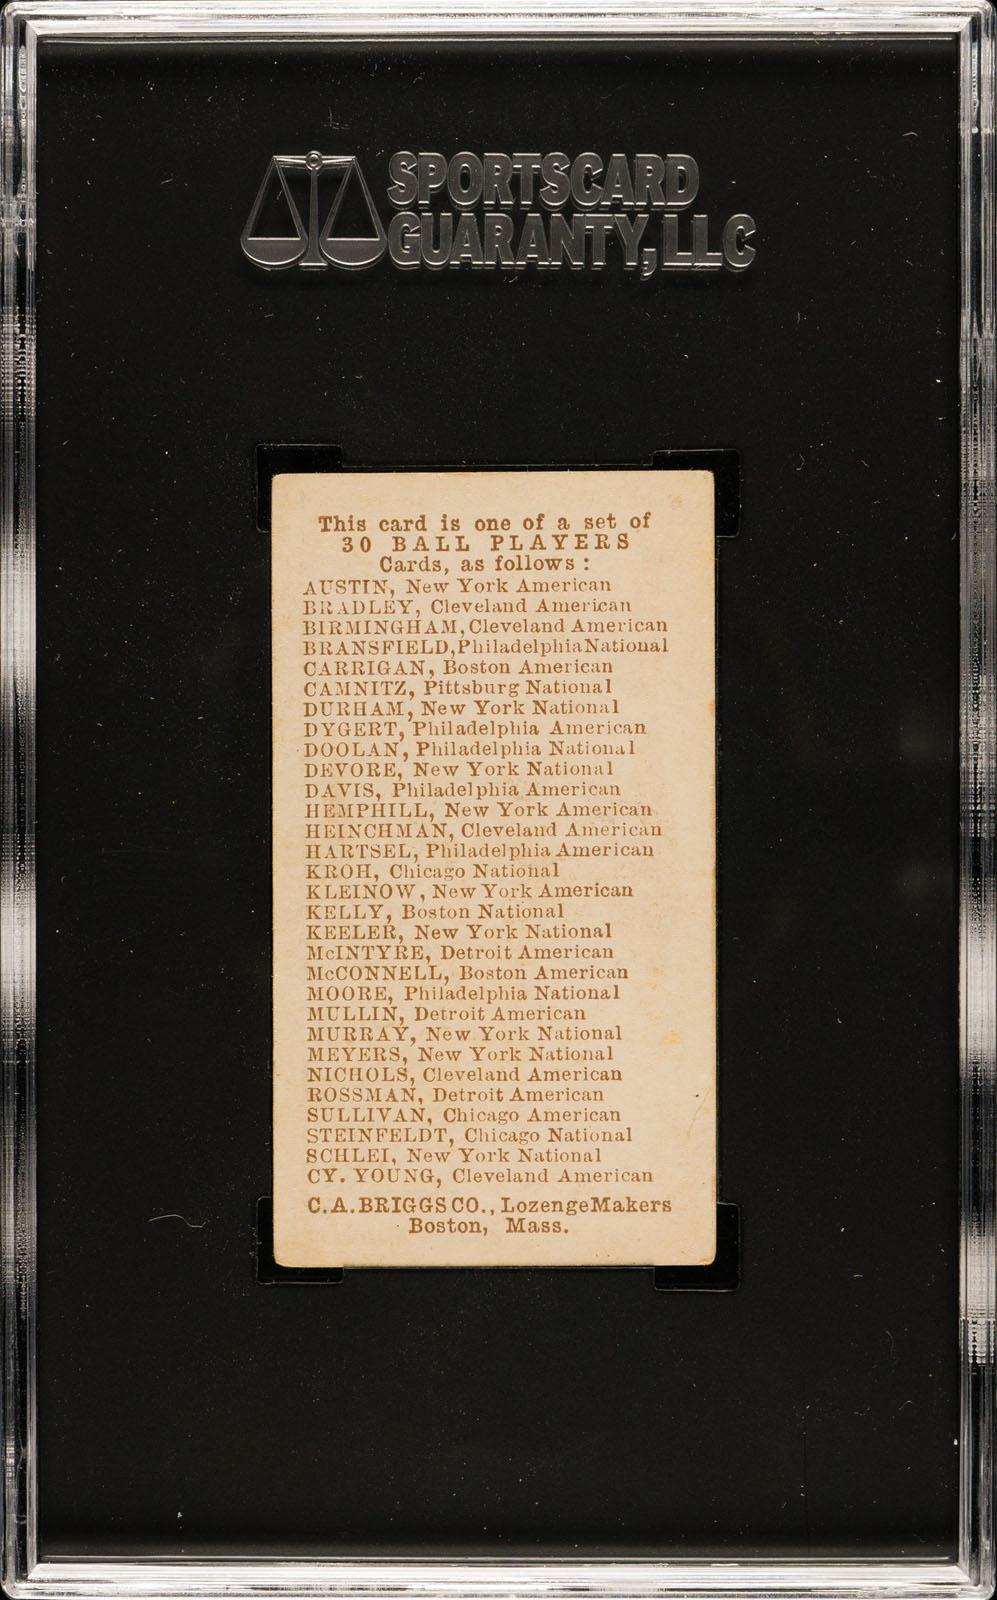 SPORTSCARD
GUARANTY, LLC
This card is one of a set of
30 BALL PLAYERS
Cards, as follows :
AUSTIN, New York American
BRADLEY, Cleveland American
BIRMINGHAM, Cleveland American
BRANSFIELD, Philadelphia National
CARRIGAN, Boston American
CAMNITZ, Pittsburg National
DURHAM, New York National
DYGERT, Philadelphia American
DOOLAN, Philadelphia National
DEVORE, New York National
DAVIS, Philadelphia American
HEMPHILL, New York American
HEINCHMAN, Cleveland American
HARTSEL, Philadelphia American
KROH, Chicago National
KLEINOW, New York American
KELLY, Boston National
KEELER, New York National
McINTYRE, Detroit American
McCONNELL, Boston American
MOORE, Philadelphia National
MULLIN, Detroit American
MURRAY, New York National
MEYERS, New York National
NICHOLS, Cleveland American
ROSSMAN, Detroit American
SULLIVAN, Chicago American
STEINFELDT, Chicago National
SCHLEI, New York National
CY. YOUNG, Cleveland American
C. A. BRIGGS CO., Lozenge Makers
Boston, Mass.